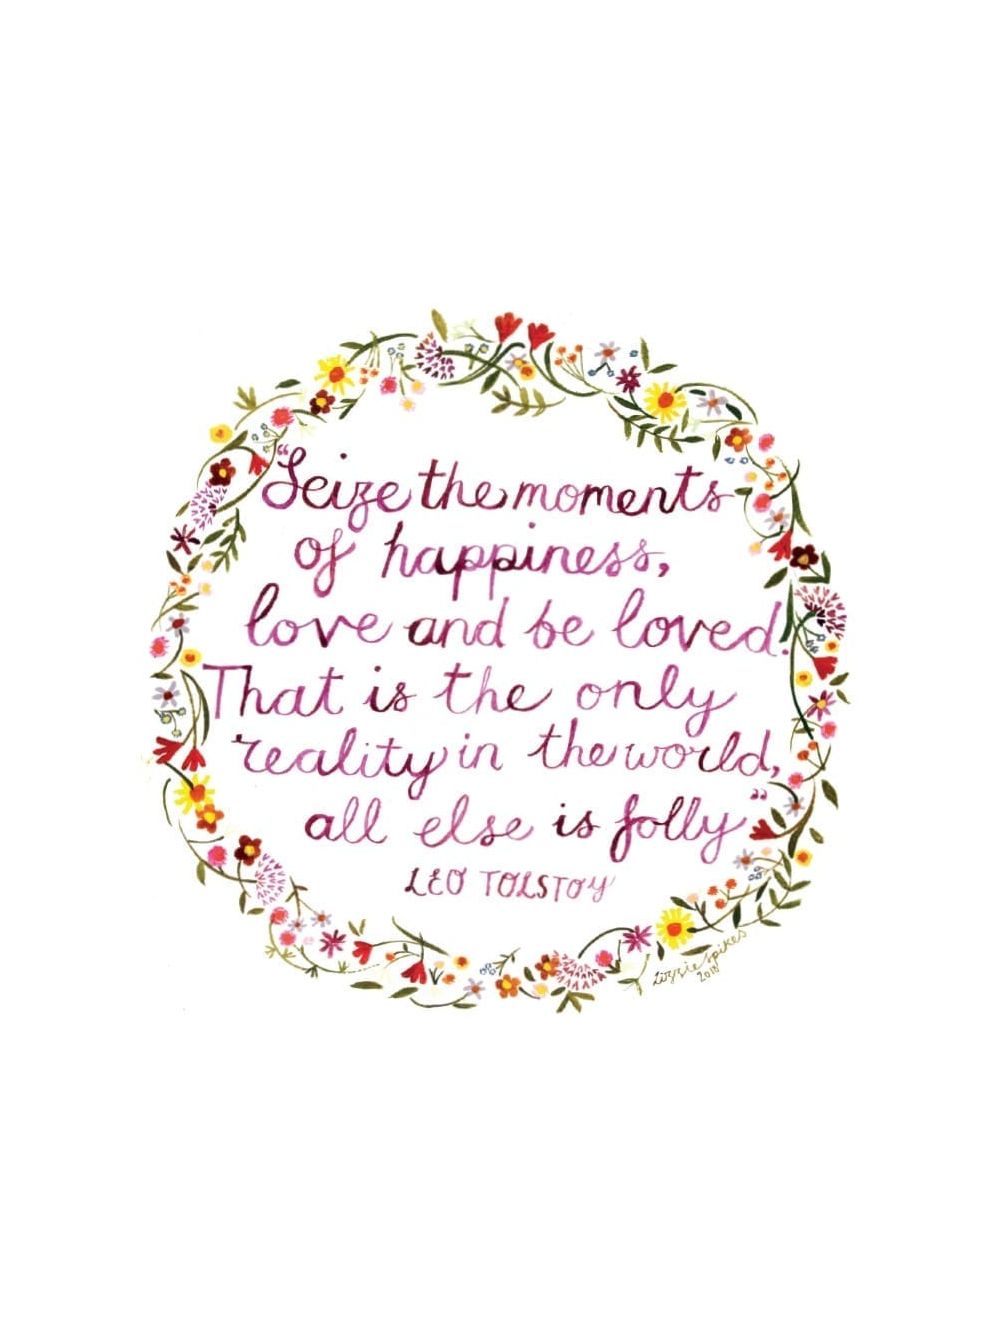 "Seize the moments
of happiness,
love and be loved!
That is the only
reality in the world,
all else is folly"
LEO TOLSTOY
Lizzie Spikes